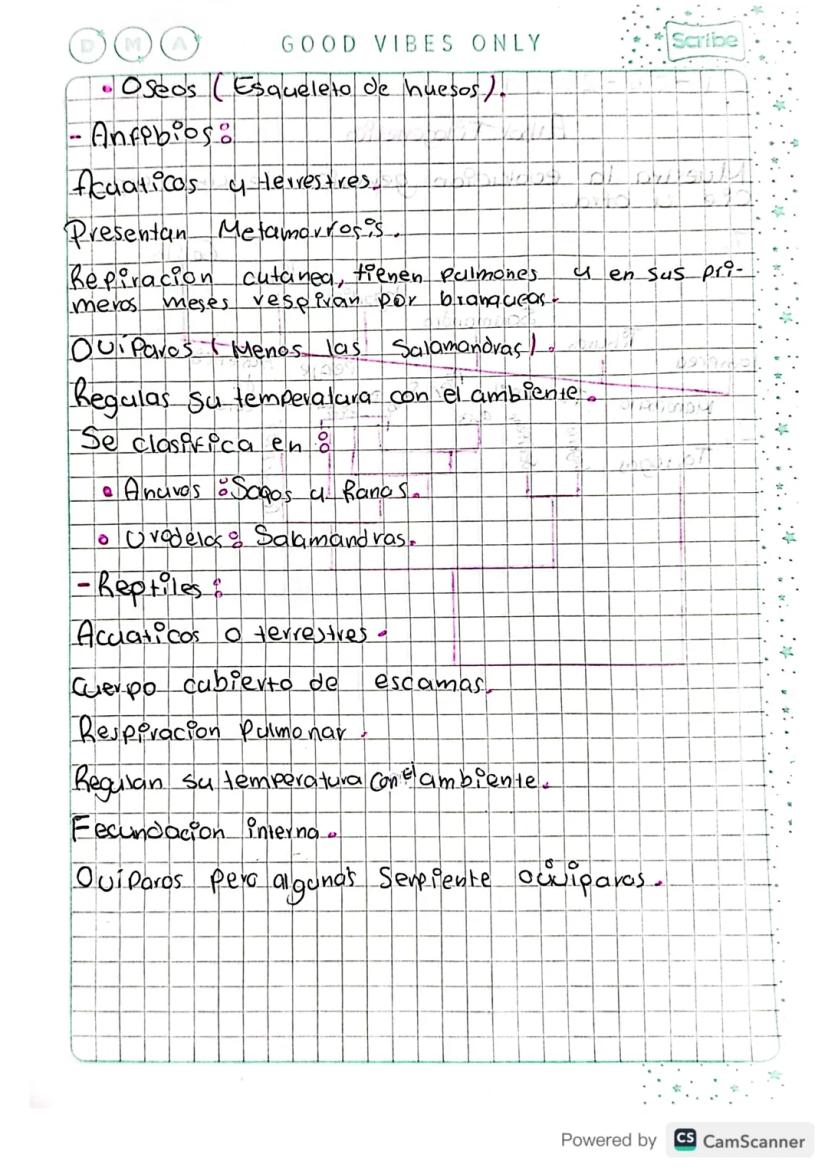 D M A GOOD VIBES ONLY Scribe
• Oseos (Esqueleto de huesos).
- Anfibios:
Acuaticos y terrestres.
Presentan Metamorrosis.
Repiracion cutanea, tienen pulmones y en sus pri-
meros meses respiran por branqueas.
Oviparos (Menos las Salamandras).
Regulas su temperatura con el ambiente.
Se clasifica en:
• Anuros: Sapos y Ranas.
• Urodelos: Salamandras.
- Reptiles:
Acuaticos o terrestres.
Cuerpo cubierto de escamas.
Respiracion Pulmonar.
Regulan su temperatura con el ambiente.
Fecundacion interna.
Oviparos pero algunas Serpiente
Powered by CS CamScanner